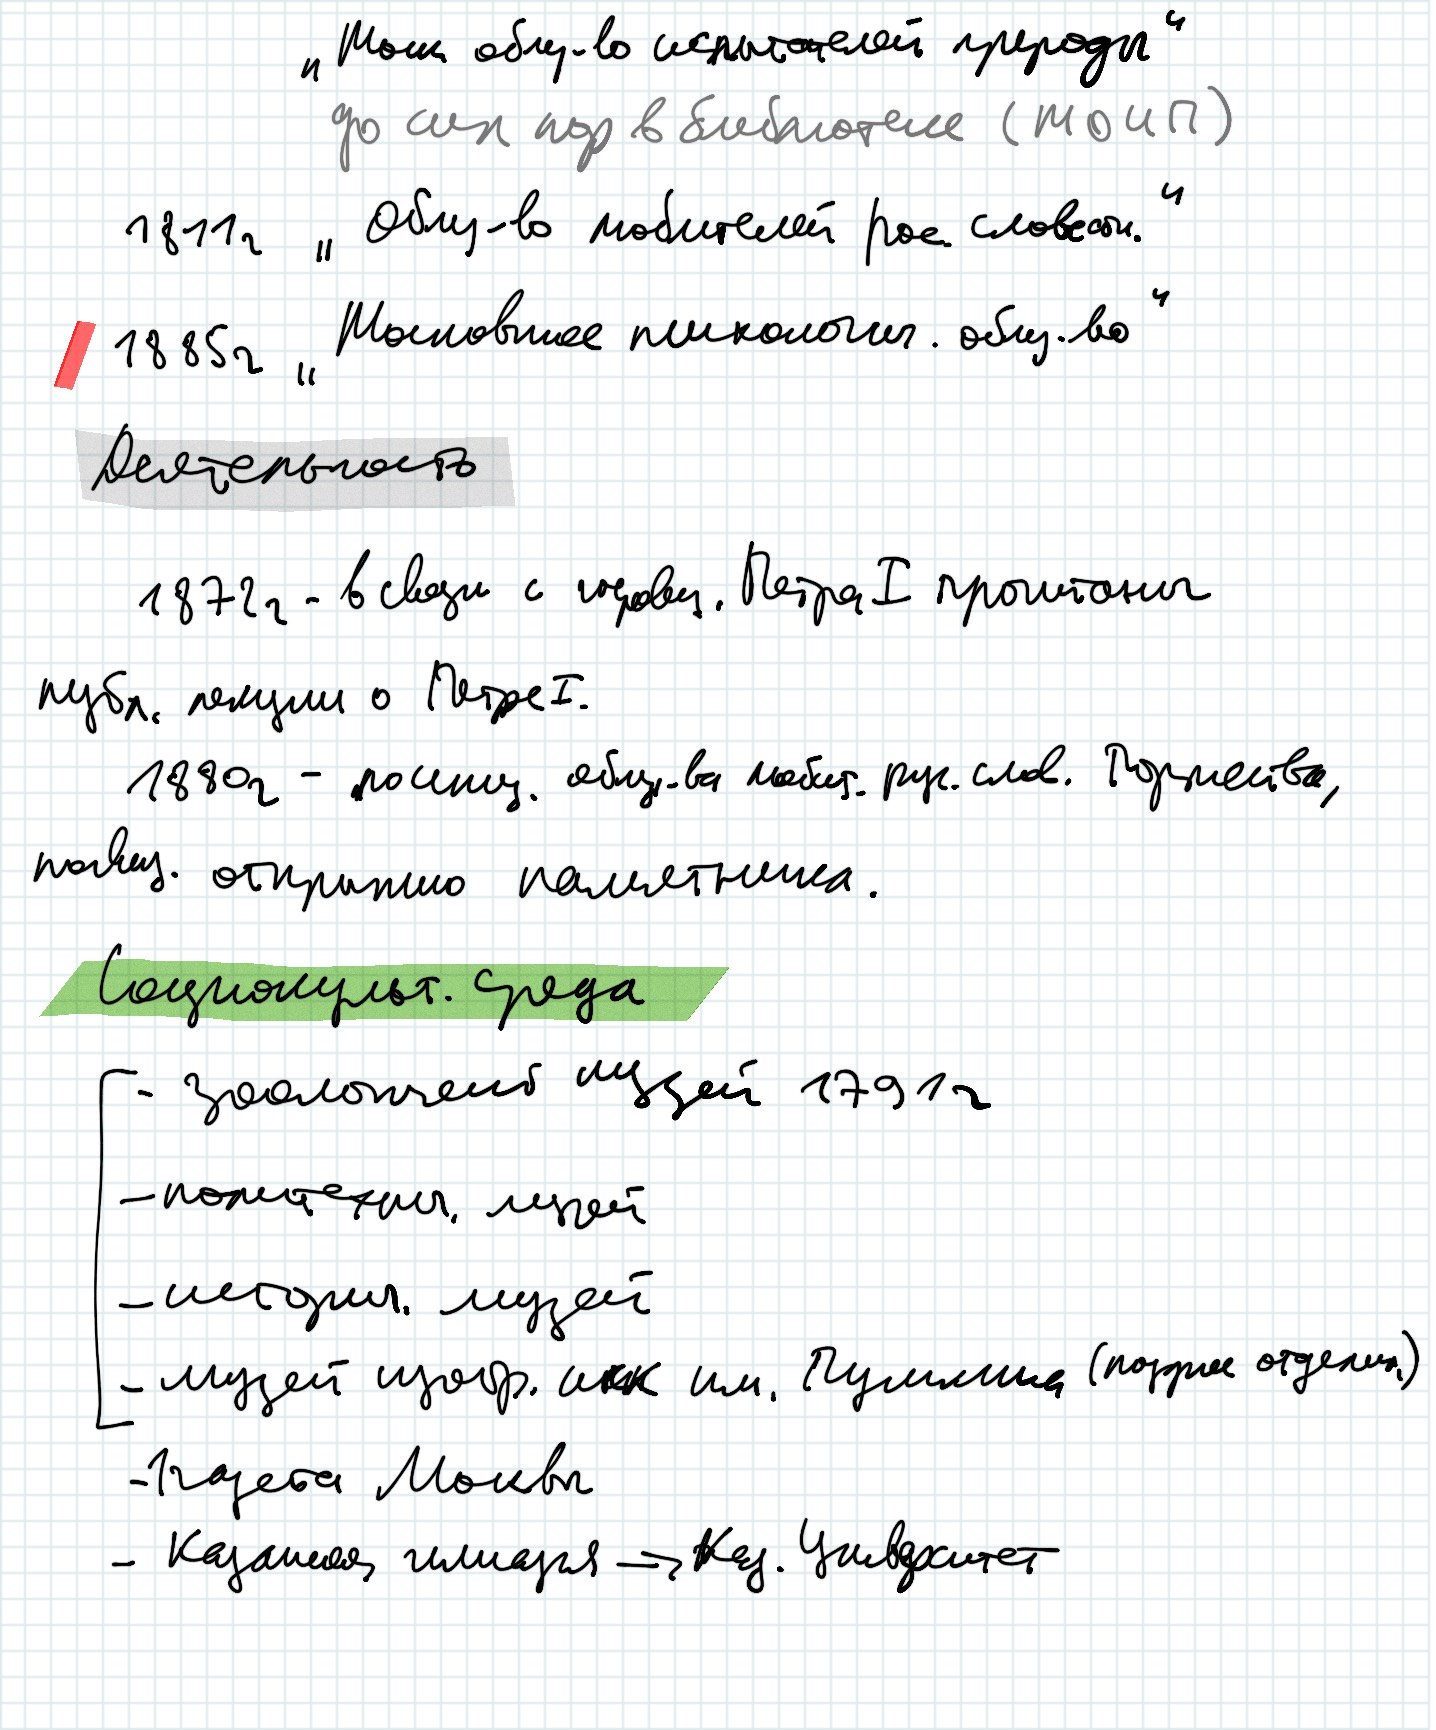 „Моск общ-во испытателей природы“
до сих пор в библиотеке (МОИП)
1811г „Общ-во любителей рос. словесн.“
1885г „Московское психологич. общ-во“
Деятельность
1872г - в связи с годовщ. Петра I прочитаны
публ. лекции о Петре I.
1880г - посвящ. общ-ва любит. рус. слов. Торжества,
посвящ. открытию памятника.
Социокульт. среда
- зоологический музей 1791г
- политехнич. музей
- историч. музей
- музей изобр. иск им. Пушкина (позднее отделил.)
- 1 газета Москвы
- Казанская гимназия → Каз. Университет